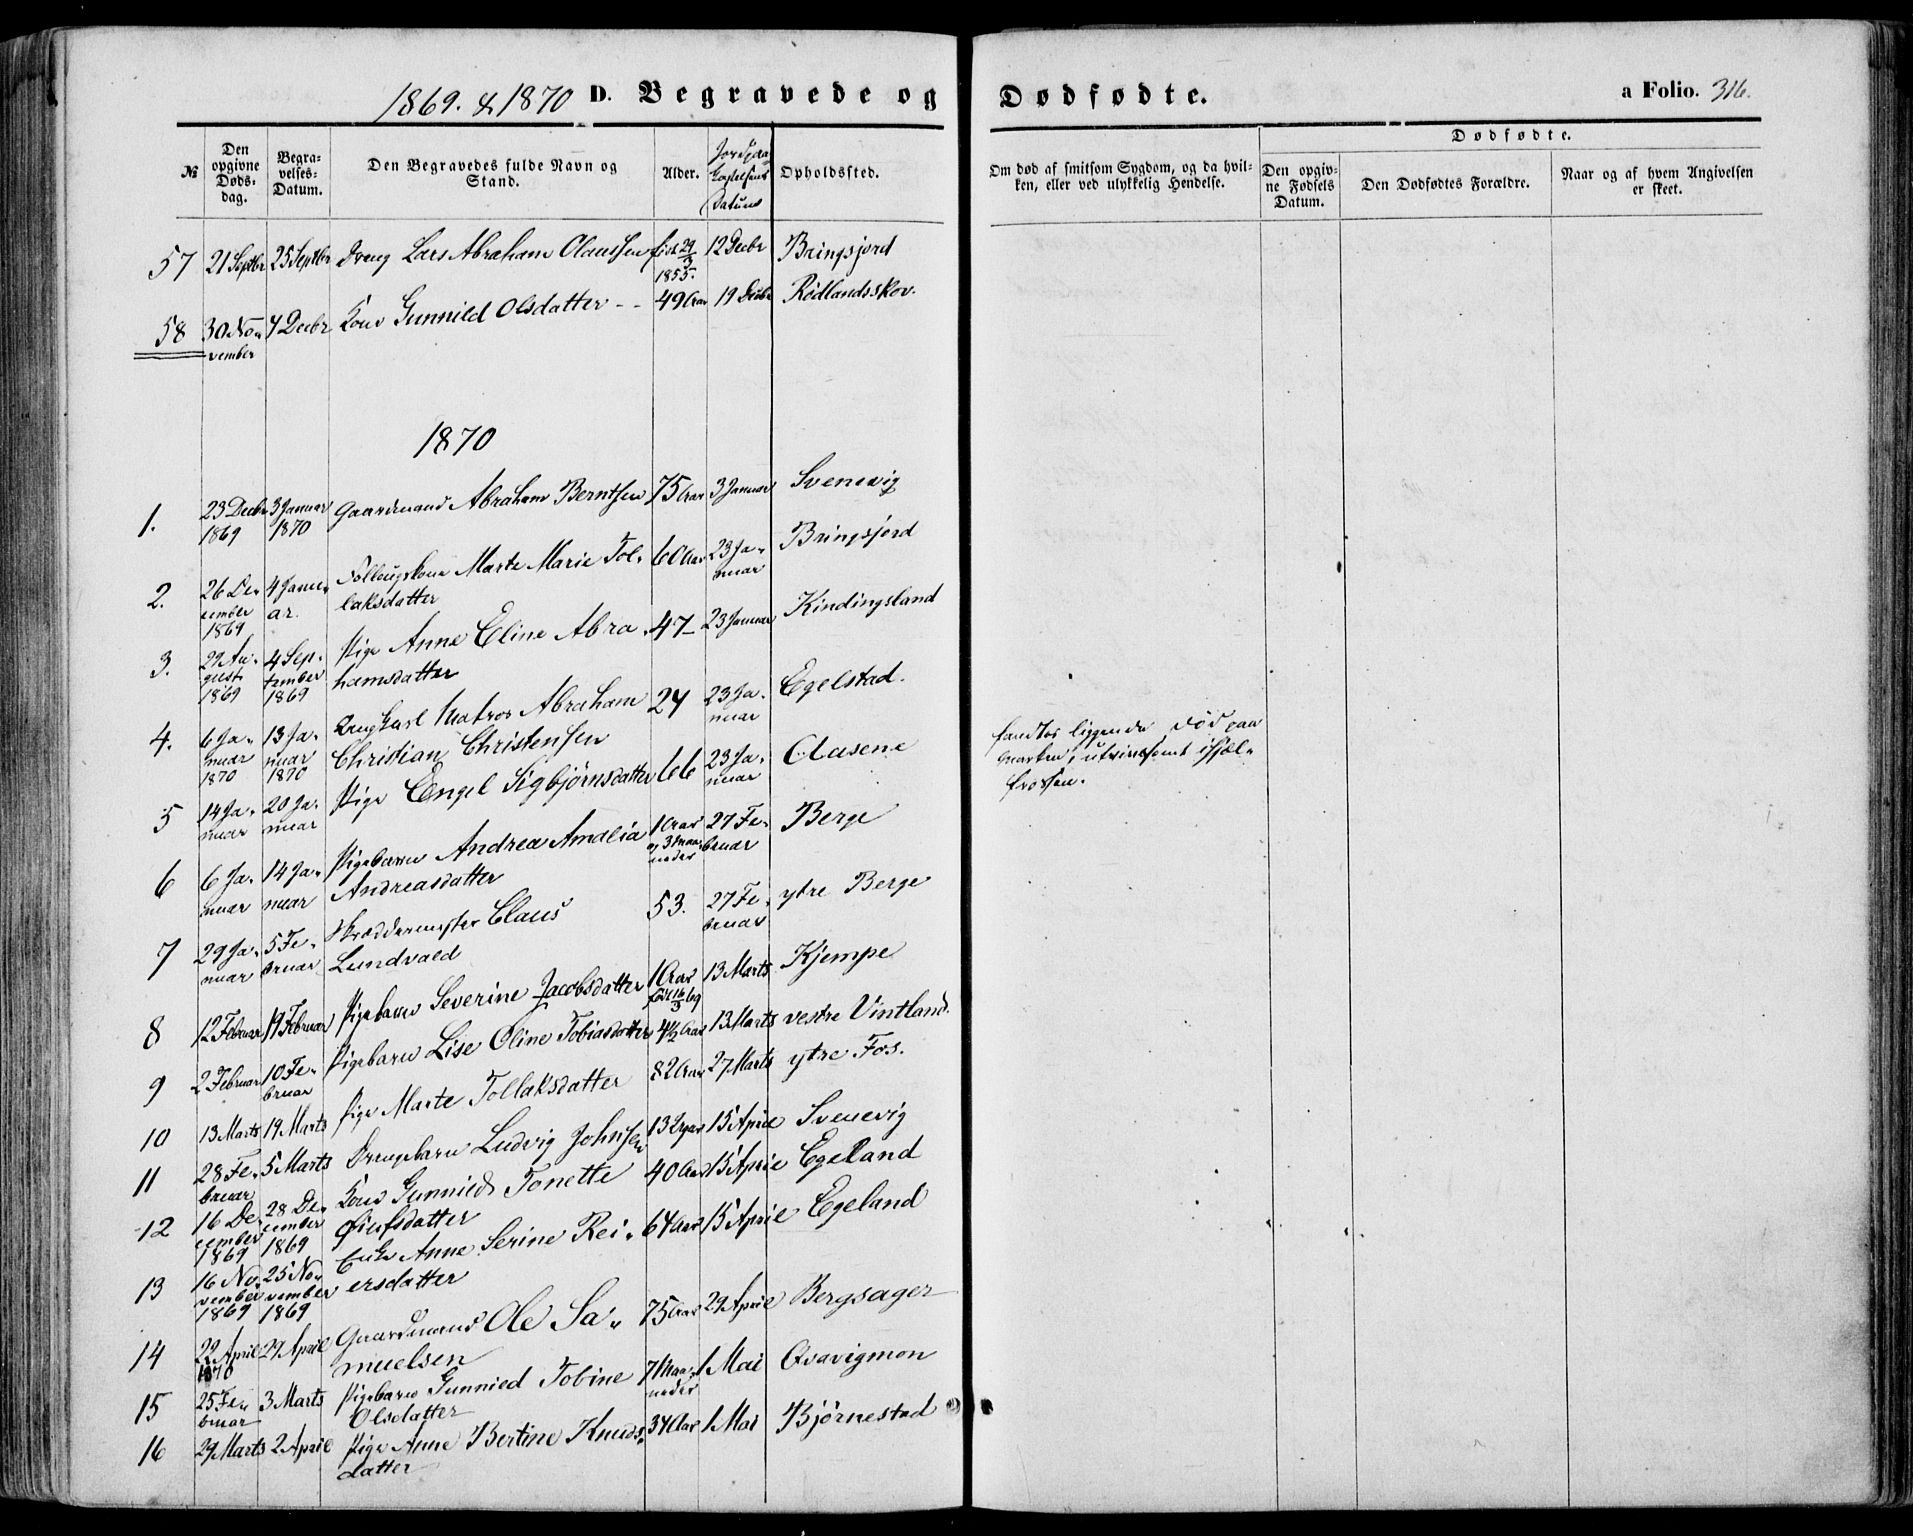 1869. & 1870 D. Begravede og Dødfødte. a Folio. 316.
№ Den opgivne Døds-dag. Begra-velses-Datum. Den Begravedes fulde Navn og Stand. Alder. Jordpaa Kastelsens Datum Opholdssted. Om død af smitsom Sygdom, og da hvil-ken, eller ved ulykkelig Hendelse. Dødfødte. Den opgiv-ne Fødsels Datum. Den Dødfødtes Forældre. Naar og af hvem Angivelsen er skeet.
57 21 Septbr 25 Septbr Dreng Lars Abraham Claussen 29/3 1855. 12 Decbr Bringsjord
58 30 No-vember 7 Decbr Kone Gunnild Olsdatter -- 49 Aar 19 Decbr Rødlandsskov.
1870
1. 23 Decbr 1869 3 Januar 1870 Gaardmand Abraham Berntsen 75 Aar 3 Januar Svenevig
2. 26 De-cember 1869 4 Janu-ar. Marte Marie Tol-laksdatter 60 Aar 23 Ja-nuar Bringsjord
3. 29 Au-gust 1869 4 Sep-tember 1869 Pige Anne Eline Abra-hamsdatter 47- 23 Januar Kindingsland
4. 6 Ja-nuar 1870 13 Ja-nuar 1870 Ungkarl Matros Abraham Christian Christensen 24 23 Ja-nuar Egelstad. fandtes liggende død paa Marken, ihjæl-frossen.
5 14 Ja-nuar 20 Ja-nuar Pige Engel Sigbjørnsdatter 66 23 Ja-nuar Aasene
6 6 Ja-nuar 14 Ja-nuar Pigebarn Andrea Amalia Andreasdatter 1 Aar og 3 Maa-neder 27 Fe-bruar Berge
7 29 Ja-nuar 5 Fe-bruar Skræddermester Claus Lundvald 53. 27 Fe-bruar ytre Berge
8 12 Februar 19 Februar Pigebarn Severine Jacobsdatter 1 Aar 13 Marts Kjempe
9 2 Februar 10 Fe-bruar Pigebarn Lise Oline Tobiasdatter 4½ Aar 13 Marts vestre Vintland.
10 13 Marts 19 Marts Pige Marte Tollaksdatter 82 Aar 27 Marts ytre Fos.
11 28 Fe-bruar 5 Marts Drengebarn Ludvig Johnsen 13 15 April Svenevig
12 16 De-cember 1869 28 De-cember 1869 Kone Gunnild Tonette 40 Aar 15 April Egeland
13 16 No-vember 1869 25 No-vember 1869 Enke Anne Serine Rei-ersdatter 64 Aar 15 April Egeland
14 22 April 1870 29 April Gaardmand Ole Sa-muelsen 75 Aar 29 April Bergsager
15 25 Fe-bruar 3 Marts Pigebarn Gunnild Tobine Olsdatter 7 Maa-neder 1 Mai Qvavigmon
16 29 Marts 2 April Pige Anne Bertine Knuds-datter 34 Aar 1 Mai Bjørnestad